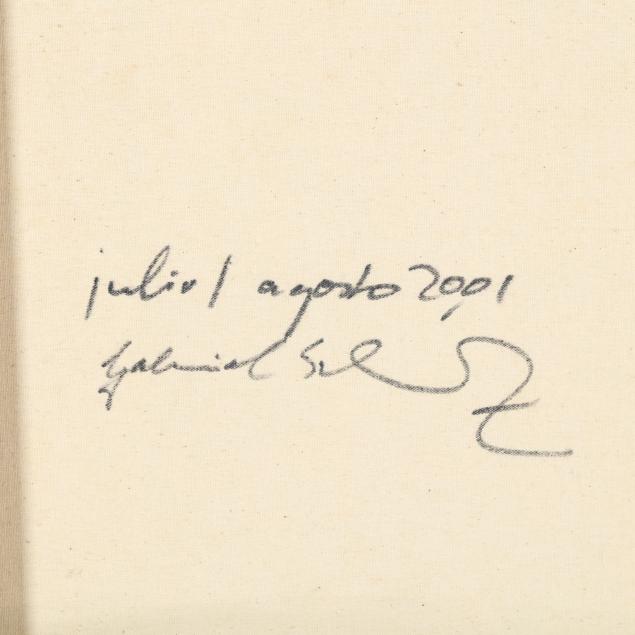 julio / agosto 2001
Gabriel